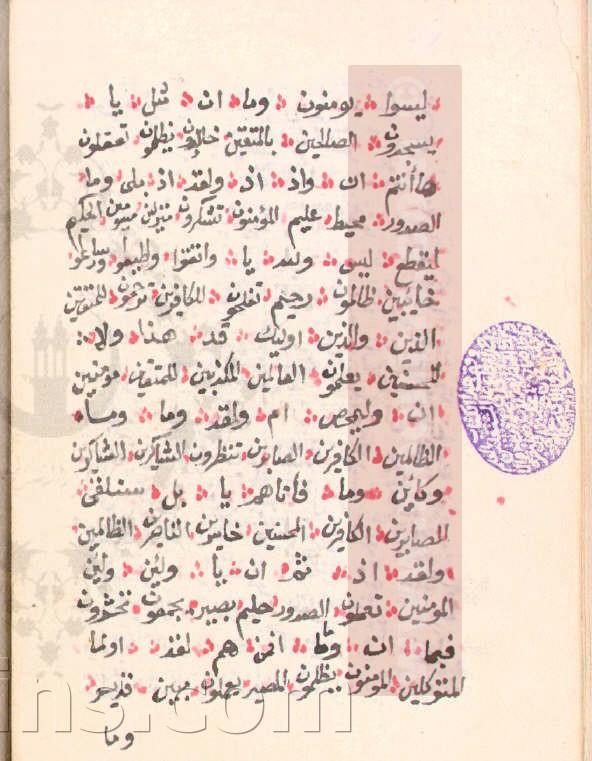 ليسوا يومنون وما ان مثل يا
يسجدون الصالحين بالمتقين خالدون يظلمون تعقلون
هاأنتم ان واذ اذ ولقد اذ بلى وما
الصدور محيط عليم المؤمنون تشكرون منزلين مسومين الحكيم
ليقطع ليس ولله يا واتقوا واطيعوا وسارعوا
خائبين ظالمون رحيم تفلحون للكافرين ترحمون للمتقين
الذين والذين اوليك قد هذا ولا
المحسنين يعلمون العاملين المكذبين للمتقين مومنين
ان وليمحص ام ولقد وما وسا
الظالمين الكافرين الصابرين تنظرون الشاكرين الشاكرين
وكاين وما فأتاهم يا بل سنلقى
الصابرين الكافرين المحسنين خاسرين الناصرين الظالمين
ولقد اذ ثم ان يا ولئن ولئن
المومنين تعملون الصدور حليم بصير يجمعون تحشرون
فبما ان وما افمن هم لقد اولما
المتوكلين المومنون يظلمون المصير يعملون مبين قدير
وما
ins.com